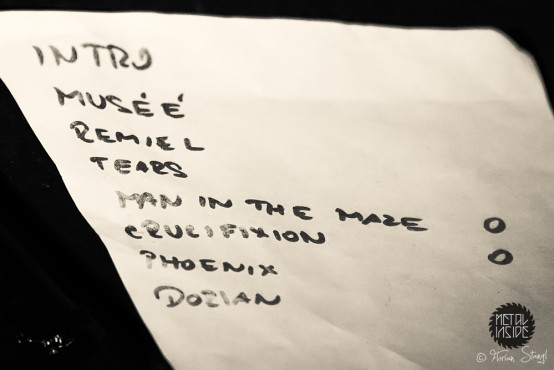 INTRO
MUSÉÉ
REMIEL
TEARS
MAN IN THE MAZE O
CRUCIFIXION O
PHOENIX
DOZIAN
METAL
INSIDE
© Florian Stangl